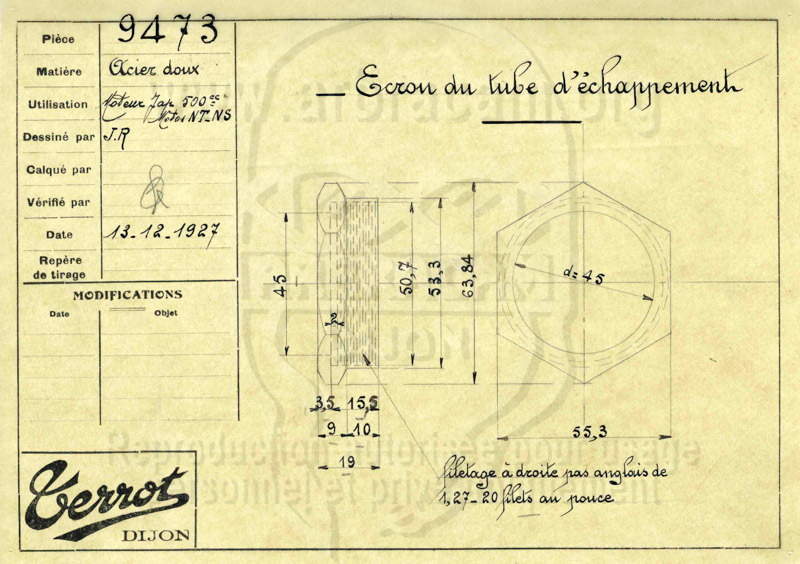 Pièce 9473
Matière Acier doux
Utilisation Moteur Jap 500cc
Motos NT-NS
Dessiné par J.R
Calqué par
Vérifié par
Date 13-12-1927
Repère
de tirage
MODIFICATIONS
Date Objet
Ecrou du tube d'échappement
45
2
50,7
53,3
63,84
d=45
3,5 15,5
9 10
19
55,3
filetage à droite pas anglais de
1,27-20 filets au pouce
Terrot
DIJON
Reproduction autorisée pour usage
personnel et privé uniquement
DIJON